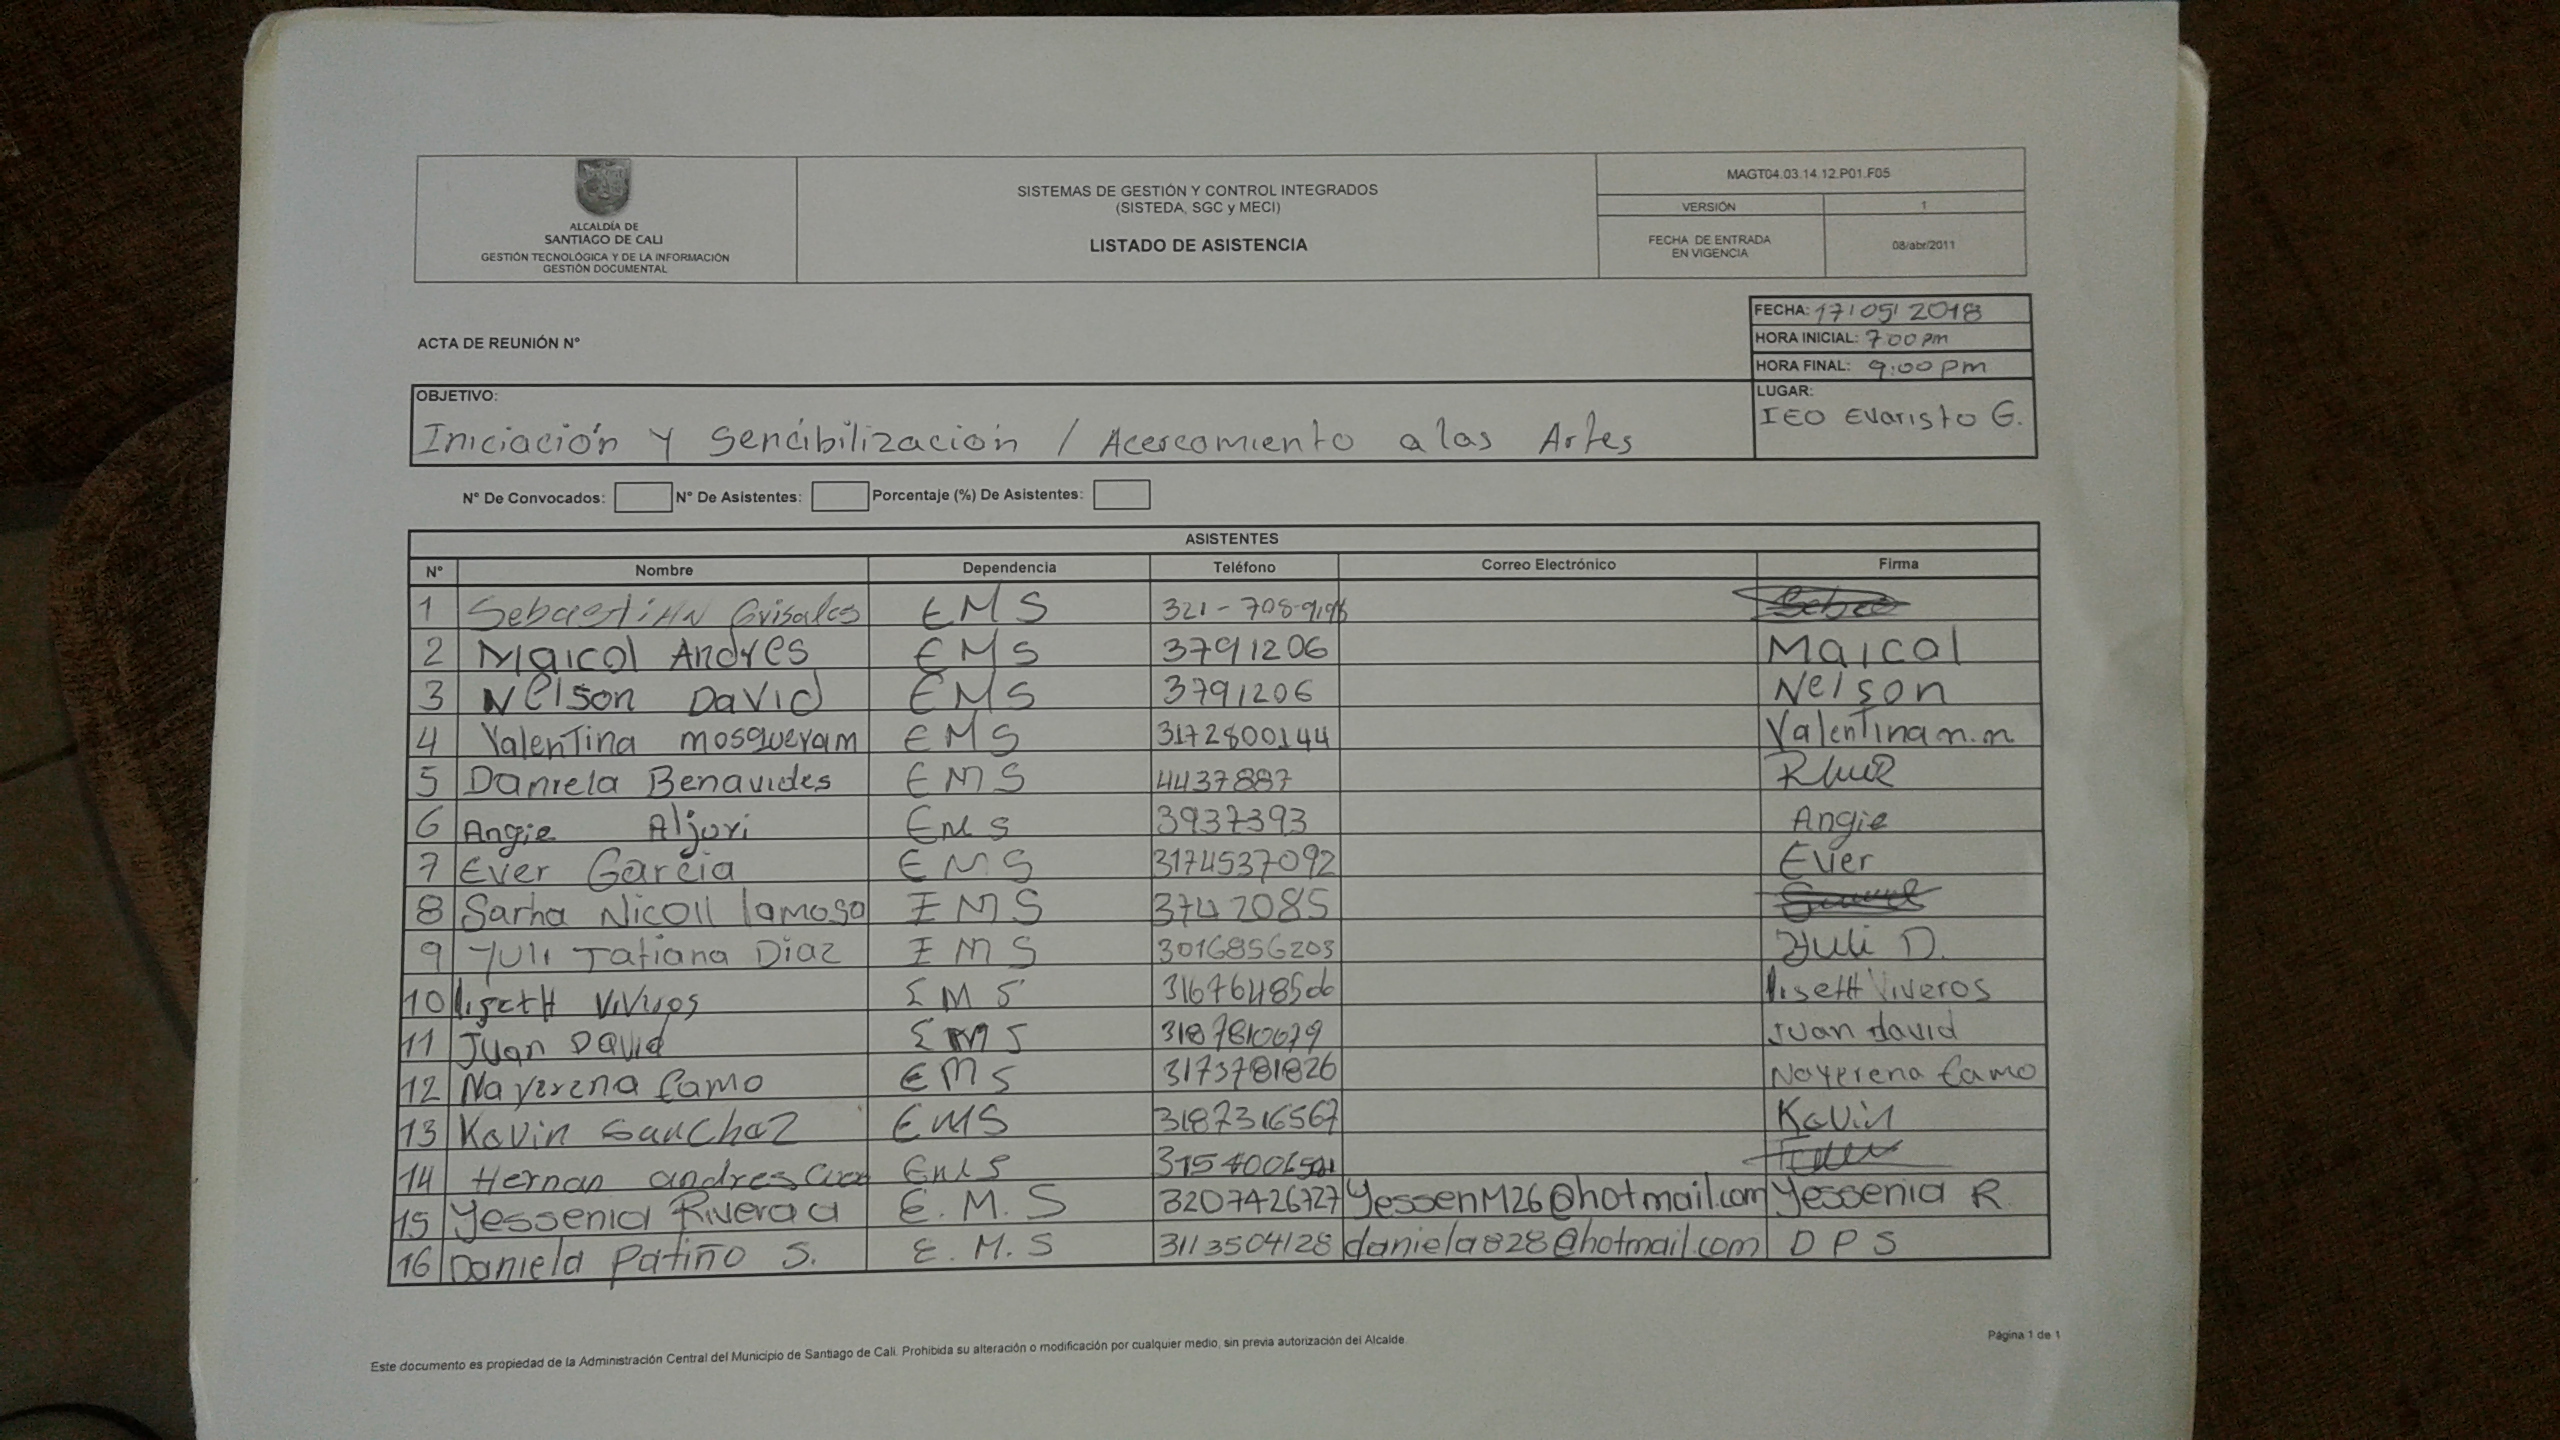 ALCALDÍA DE
SANTIAGO DE CALI
GESTIÓN TECNOLÓGICA Y DE LA INFORMACIÓN
GESTIÓN DOCUMENTAL
SISTEMAS DE GESTIÓN Y CONTROL INTEGRADOS
(SISTEDA, SGC y MECI)
LISTADO DE ASISTENCIA
MAGT04.03.14.12.P01.F05
VERSIÓN 1
FECHA DE ENTRADA
EN VIGENCIA 08/abr/2011
ACTA DE REUNIÓN N°
FECHA: 17/05/2018
HORA INICIAL: 7:00 pm
HORA FINAL: 9:00 pm
OBJETIVO:
Iniciación y Sencibilización / Acercamiento a las Artes
LUGAR:
IEO Evaristo G.
N° De Convocados: N° De Asistentes: Porcentaje (%) De Asistentes:
ASISTENTES
N° Nombre Dependencia Teléfono Correo Electrónico Firma
1 EMS
2 Maicol Andres EMS 3791206 Maicol
3 Nelson David EMS 3791206 Nelson
4 Valentina mosqueram EMS 3172800144 Valentina m.m
5 Daniela Benavides EMS 4437887
6 Angie EMS 3937393 Angie
7 Evier Garcia EMS 3174537092 Evier
8 Sarha Nicoll IMS 3747085
9 Yuli Tatiana Diaz IMS 3016856203 Yuli D.
10 lisett EMS lisett Viveros
11 Juan David EMS Juan david
12 Nayerena Camo EMS 3173781826 Nayerena Camo
13 Kavin Sanchaz EMS 3187316567 Kavin
14 Hernan andres EMS
15 Yessenia Rivera EMS 3207426727 YessenM26@hotmail.com Yessenia R.
16 Daniela Patiño S. E.M.S 3113504128 daniela828@hotmail.com DPS
Este documento es propiedad de la Administración Central del Municipio de Santiago de Cali. Prohibida su alteración o modificación por cualquier medio, sin previa autorización del Alcalde
Página 1 de 1